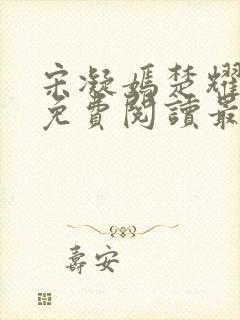 宋凝嫣楚耀
免費閱讀最
壽安